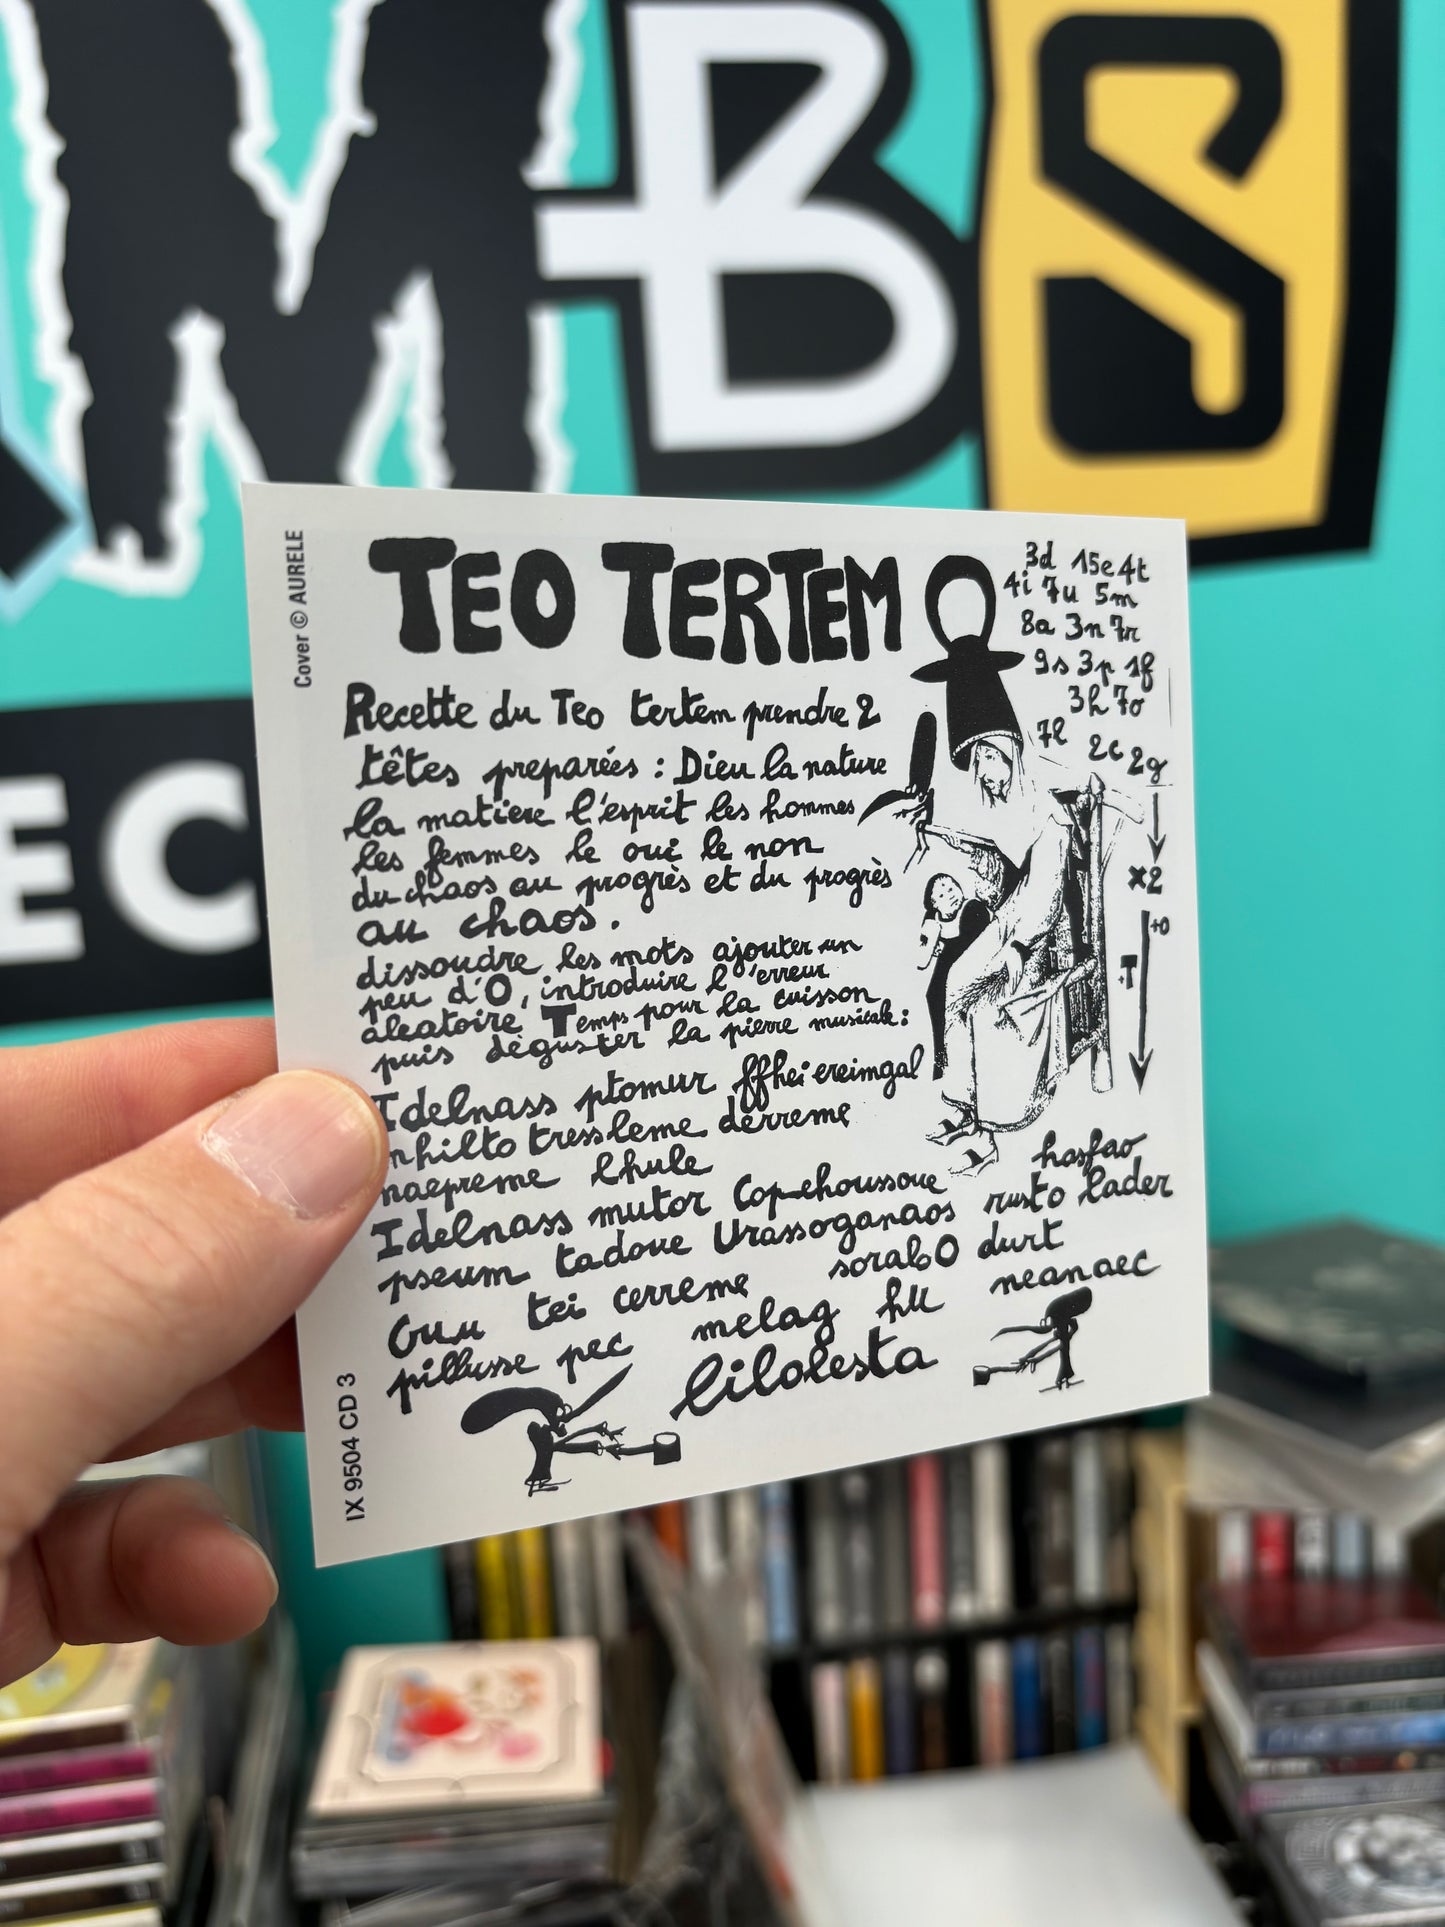 MBS
EC
Cover © AURELE
TEO TERTEM
Recette du Teo tertem prendre 2
têtes preparées : Dieu la nature
la matiere l'esprit les hommes
les femmes le oui le non
du chaos au progrès et du progrès
au chaos.
dissoudre les mots ajouter un
peu d'O, introduire l'erreur
aleatoire Temps pour la cuisson
puis déguster la pierre musicale:
Idelnass ptomur ffhei ereimgal
nhilto tressleme derreme
naepreme lhule
Idelnass mutor Copehoussoue hasfao
pseum tadoue Urassoganaos rusto lader
Ouu tei cerreme sorabO durt
pillusse pec melag hu neanaec
lilolesta
3d 15e 4t
4i 7u 5m
8a 3n 7r
9s 3p 1f
3h 7o
7l 2c 2g
x2
+o
+T
IX 9504 CD 3